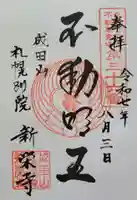 奉拝
令和七年八月三日
不動明王
成田山
札幌別院
新栄寺